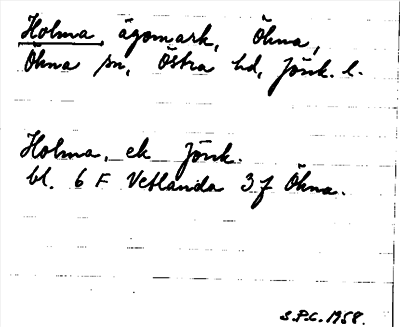 Holma, ägomark, Öhna,
Öhna sn, Östra hd, Jönk. l.
Holma, ek Jönk.
bl. 6 F Vetlanda 3 f Öhna.
S.P.C. 1958.